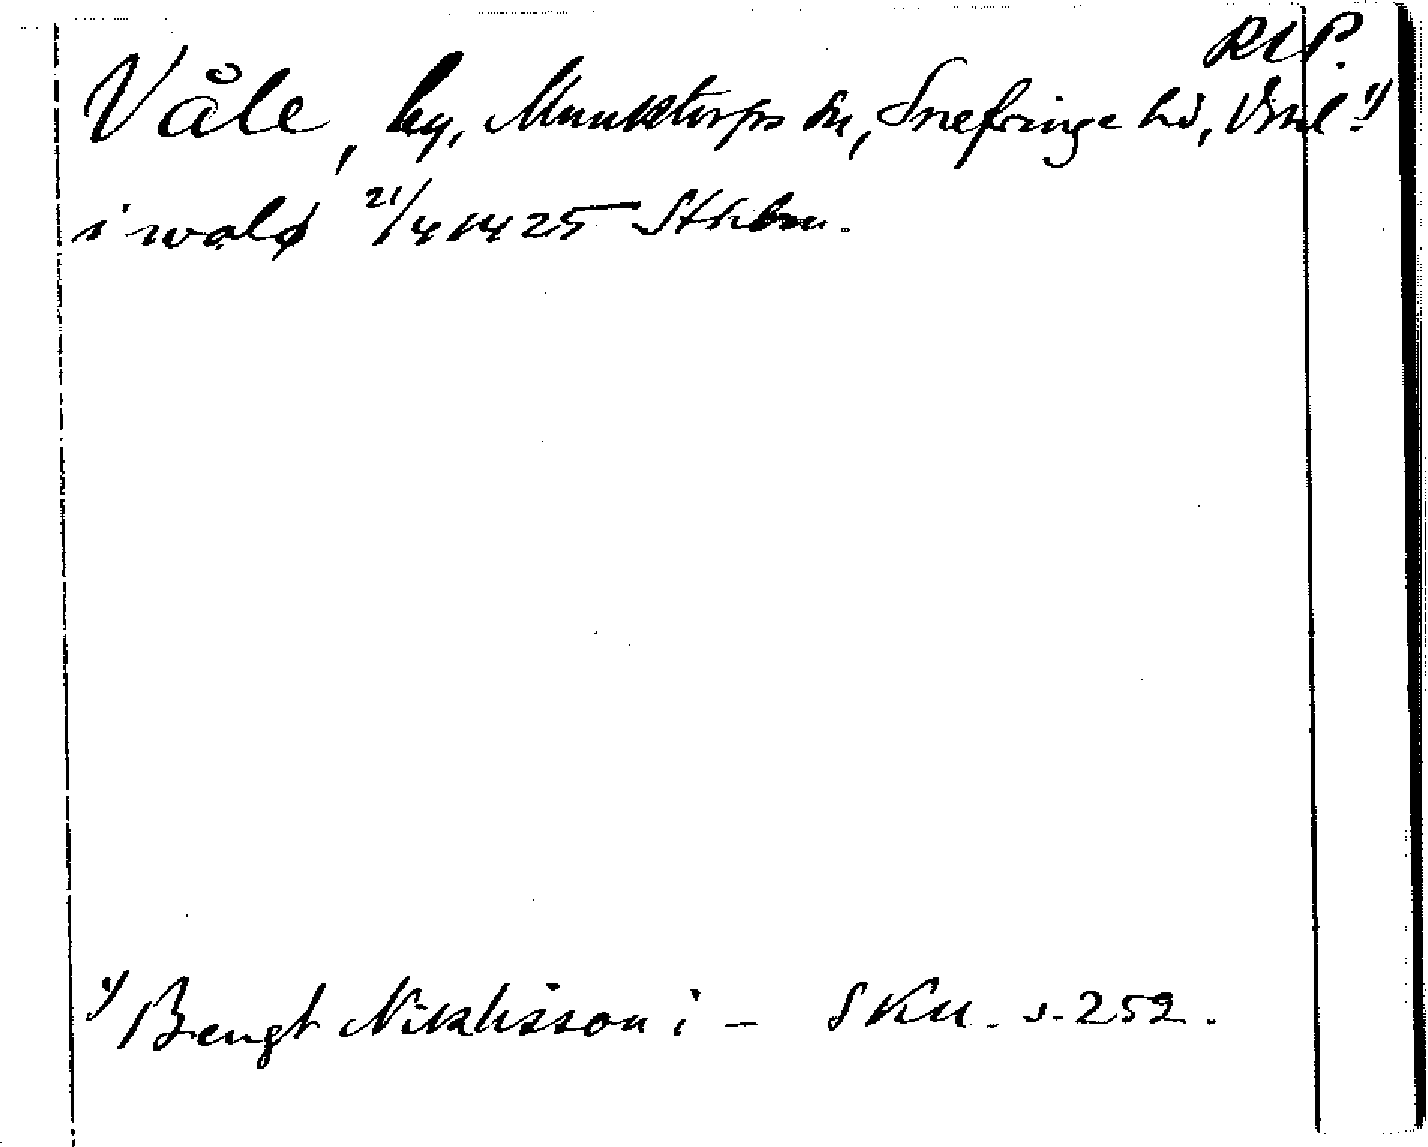 RAP.
Våle, by, Munktorps sn, Snefringe hd, Vstml. 1)
i wålø 21/4 1425 Sthlm.
1) Bengt Niklisson i – SKM. s. 252.